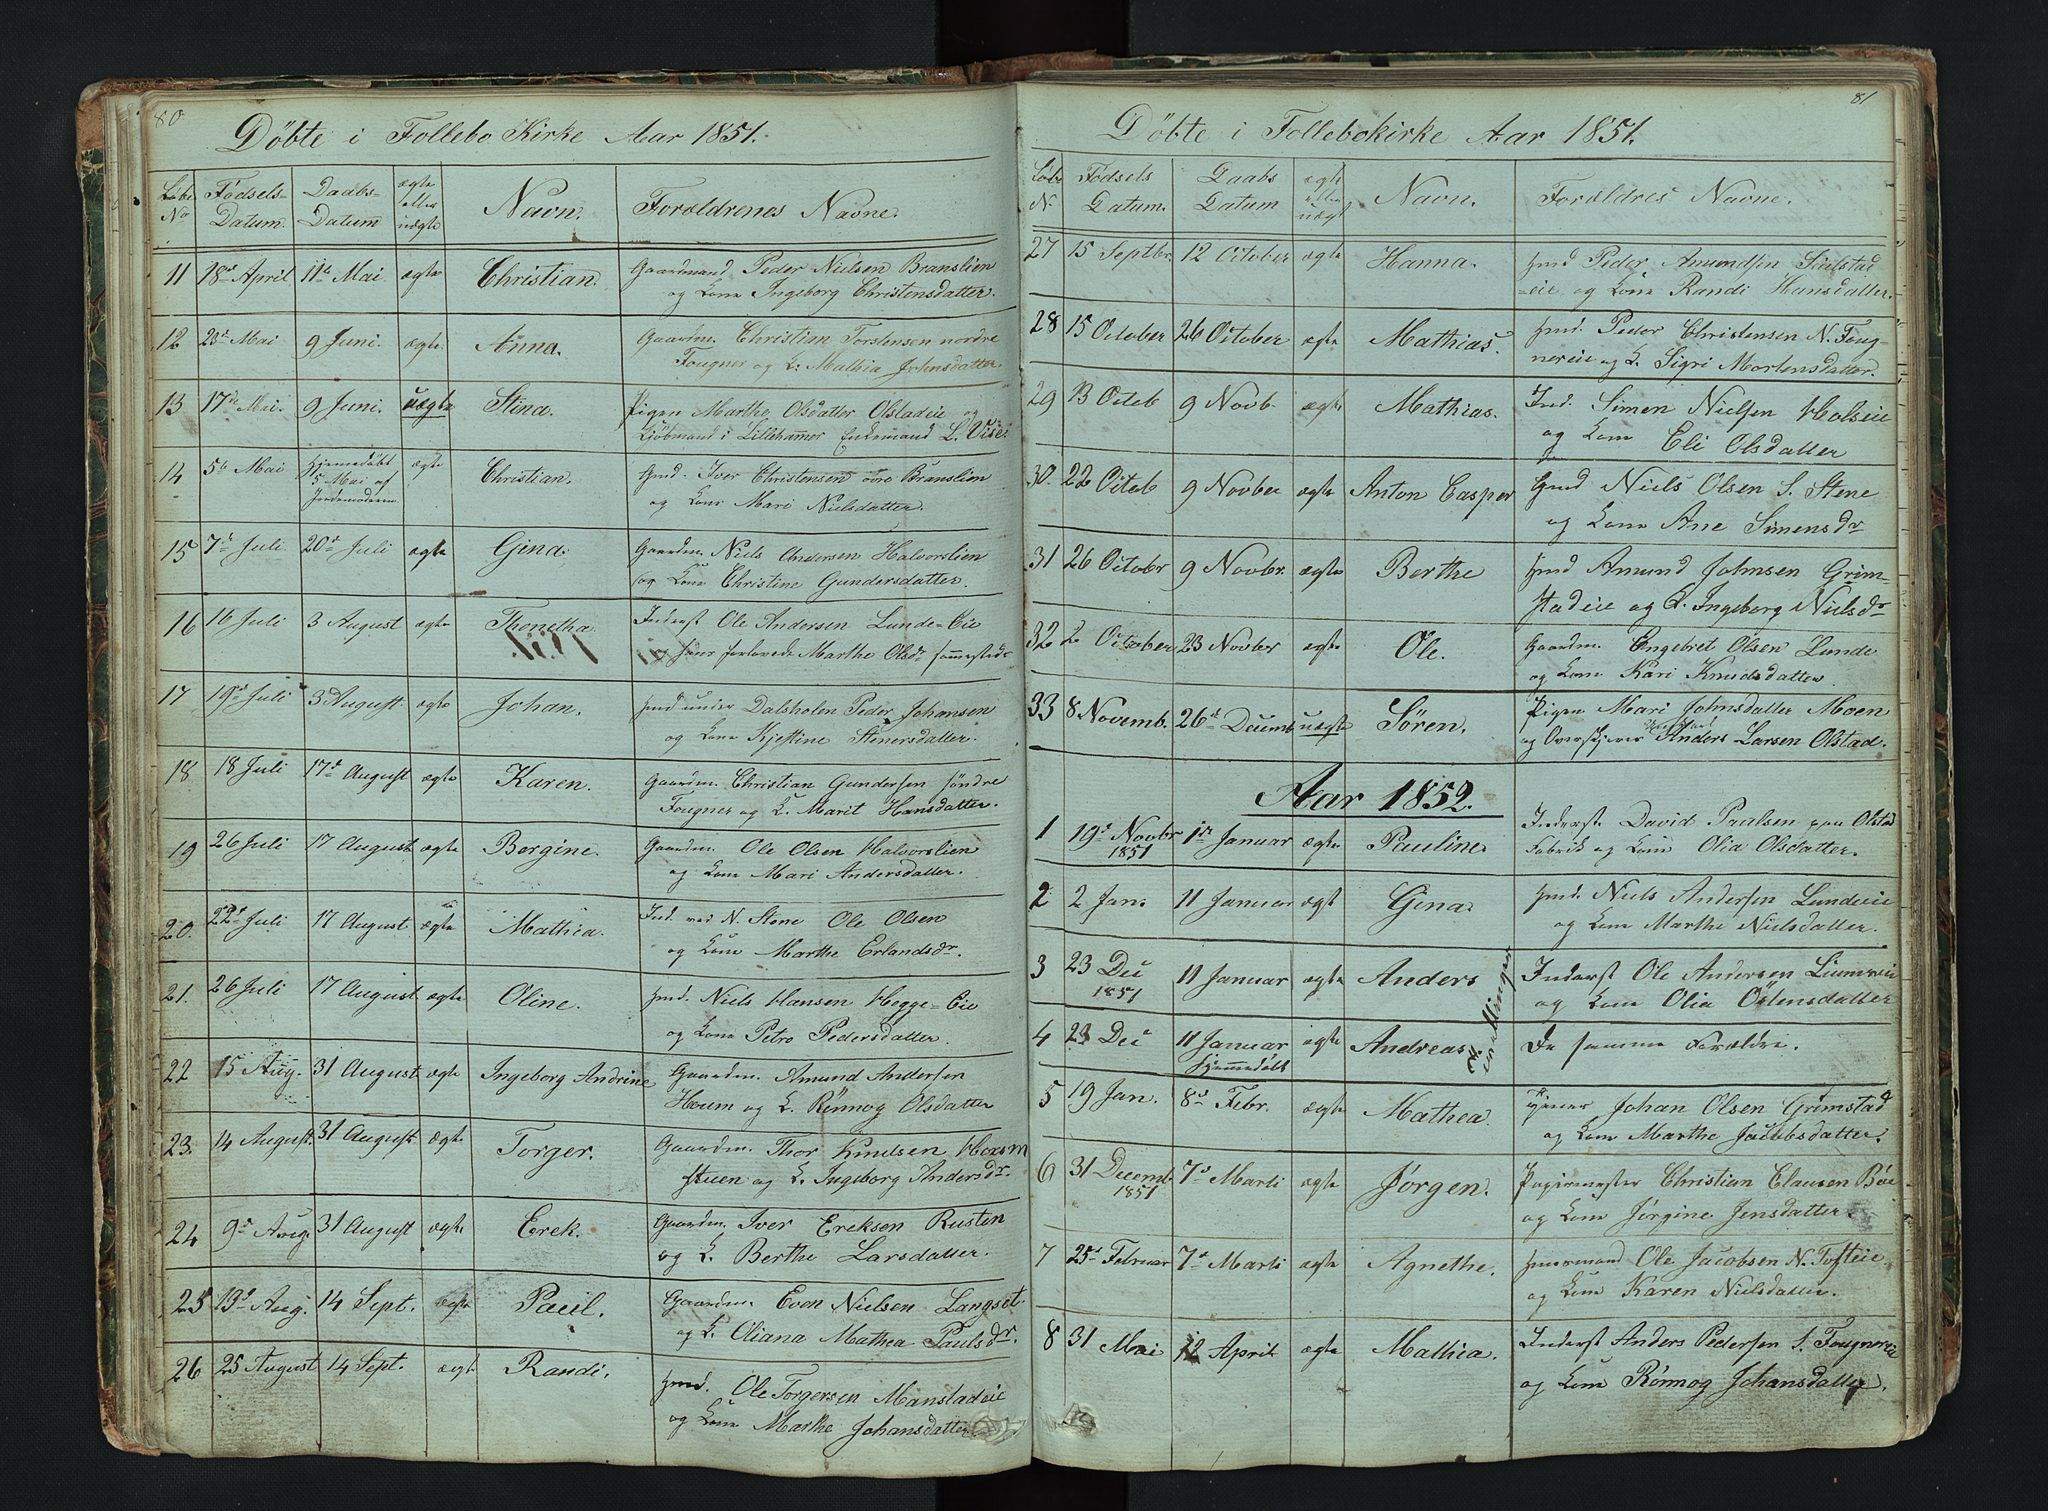 80.
Döbte i Follebo Kirke Aar 1851.
Löbe No | Födsels-Datum. | Daabs-Datum | ægte eller uægte | Navn. | Forældrenes Navne.
11 | 18de April | 11te Mai. | ægte | Christian. | Gaardmand Peder Nielsen Branslien
og Kone Ingeborg Christensdatter.
12 | 23de Mai | 9 Juni. | ægte. | Anna. | Gaardm. Christian Torstensen nordre
Fougner og K. Mathia Johnsdatter.
13 | 17de Mai. | 9 Juni. | uægte | Stina. | Pigen Marthe Olsdatter Olstadeie og
Kjöbmand i Lillehamer Enkemand L. Vise.
14 | 5te Mai | Hjemmedöbt 5 Mai af Jordemoderen | ægte | Christian. | Gmd. Iver Christensen övre Branslien
og Kone Mari Nielsdatter.
15 | 7de Juli | 20de Juli | ægte | Gina. | Gaardm. Niels Andersen Halvorslien
og Kone Christine Gundersdatter.
16 | 16 Juli | 3 August | ægte | Thonetha | Inderst Ole Andersen Lunde-Eie
og hans forlovede Marthe Olsdr sammesteds
17 | 19de Juli | 3 August. | ægte | Johan. | Hmd under Dalsholen Peder Johansen
og Kone Kjestine Stenersdatter.
18 | 18 Juli | 17de August | ægte | Karen. | Gaardm. Christian Gundersen söndre
Fougner og K. Marit Hansdatter.
19 | 26 Juli | 17 August | ægte | Bergine. | Gaardm. Ole Olsen Halvorslien
og Kone Mari Andersdatter.
20. | 22de Juli | 17 August | ægte | Mathea. | Ind. ved N. Stene Ole Olsen
og Kone Marthe Erlandsdr.
21. | 26 Juli | 17 August | ægte | Oline. | Hmd. Niels Hansen Hegge-Eie
og Kone Petro Pedersdatter.
22 | 15 Aug. | 31 August | ægte | Ingeborg Andrine | Gaardm. Amund Andersen
Houm og K. Rönnog Olsdatter
23. | 14 August. | 31 August. | ægte | Torger. | Gaardm. Thor Knudsen Hoxsm
stuen og K. Ingeborg Andersdr.
24 | 9de Aug. | 31 August | ægte | Erek. | Gaardm. Iver Ereksen Rusten
og K. Berthe Larsdatter.
25 | 13de Aug. | 14 Sept. | ægte | Paul. | Gaardm. Even Nielsen Langset
og K. Oliana Mathea Paulsdr.
26 | 25 August | 14 Sept. | ægte | Randi. | Hmd. Ole Torgersen Manstadeie
og Kone Marthe Johansdatter
81
Döbte i Follebokirke Aar 1851.
Löbe N. | Födsels Datum. | Daabs Datum | ægte eller uægt | Navn. | Forældres Navne.
27 | 15 Septbr. | 12 October | ægte | Hanna. | Hmd Peder Amundsen
eie og Kone Randi Hansdatter.
28 | 15 October | 26 October | ægte | Mathias. | Hmd. Peder Christensen N. Foug-
nereie og K. Sigri Mortensdatter.
29 | 13 Octob | 9 Novb. | ægte | Mathias. | Ind. Simen Nielsen Holseie
og Kone Eli Olsdatter
30. | 22 Octob | 9 Novber | ægte | Anton Casper | Gmd Niels Olsen S. Stene
og Kone Ane Simensdr
31 | 26 Octobr | 9 Novbr. | ægte | Berthe | Hmd Amund Johnsen Grim-
stadeie og K. Ingeborg Nielsdr
32 | 2 October | 23 Novber | ægte | Ole. | Gaardm. Engebret Olsen Lunde
og Kone Kari Knudsdatter
33 | 8 Novemb. | 26de Decemb. | uægte | Sören. | Pigen Mari Johnsdatter Moen
og Anders Larsen Olstad.
Aar 1852.
1 | 19de Novbr 1851 | 1ste Januar | ægte | Pauline. | Inderst David Paalsen paa Olstad
Fabrik og Kone Olia Olsdatter.
2 | 2 Jan. | 11 Januar | ægt | Gina. | Hmd. Niels Andersen Lundeeie
og Kone Marthe Nielsdatter.
3 | 23 Dec 1851 | 11 Januar | ægte | Anders | Inderst Ole Andersen
og Kone Olia Östensdatter
4 | 23 Dec | 11 Januar hjemmedöbt | ægte | Andreas | De samme Forældre.
Tvillinger
5 | 19 Jan. | 8de Febr. | ægte | Mathea. | Johan Olsen Grimstad
og Kone Marthe Jacobsdatter.
6 | 31 Decemb. 1851 | 7de Marti | ægte | Jørgen. | Papirmester Christian Clausen Böe
og Kone Jørgine Jensdatter.
7 | 25de Februar | 7de Marti | ægte | Agnethe. | Huusmand Ole Jacobsen N. Tofteie
og Kone Karen Nielsdatter.
8 | 31 Mai | 12 April | ægte | Mathea. | Inderst Anders Pedersen S. Fougnereie
og Kone Rönnog Johansdatter.